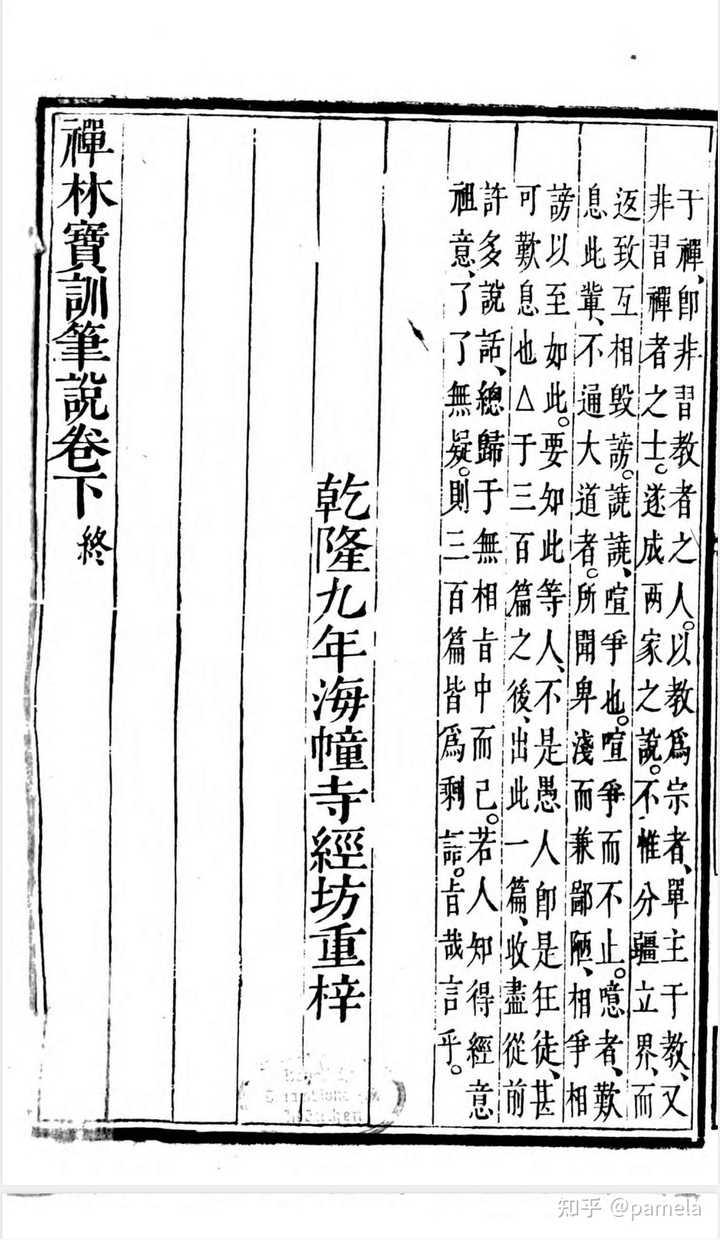 于禪、即非習教者之人。以教爲宗者、單主于教、又
非習禪者之士。遂成兩家之說。不惟分疆立界、而
返致互相毀謗。譊譊、喧爭也。喧爭而不止。噫者、歎
息此輩、不通大道者。所聞卑淺而兼鄙陋、相爭相
謗以至如此。要如此等人、不是愚人即是狂徒、甚
可歎息也△于三百篇之後、出此一篇、收盡從前
許多說話、總歸于無相㫖中而已。若人知得經意
祖意、了了無疑。則三百篇皆爲剩語。㫖哉言乎。
乾隆九年海幢寺經坊重梓
禪林寶訓筆說卷下 終
知乎 @pamela